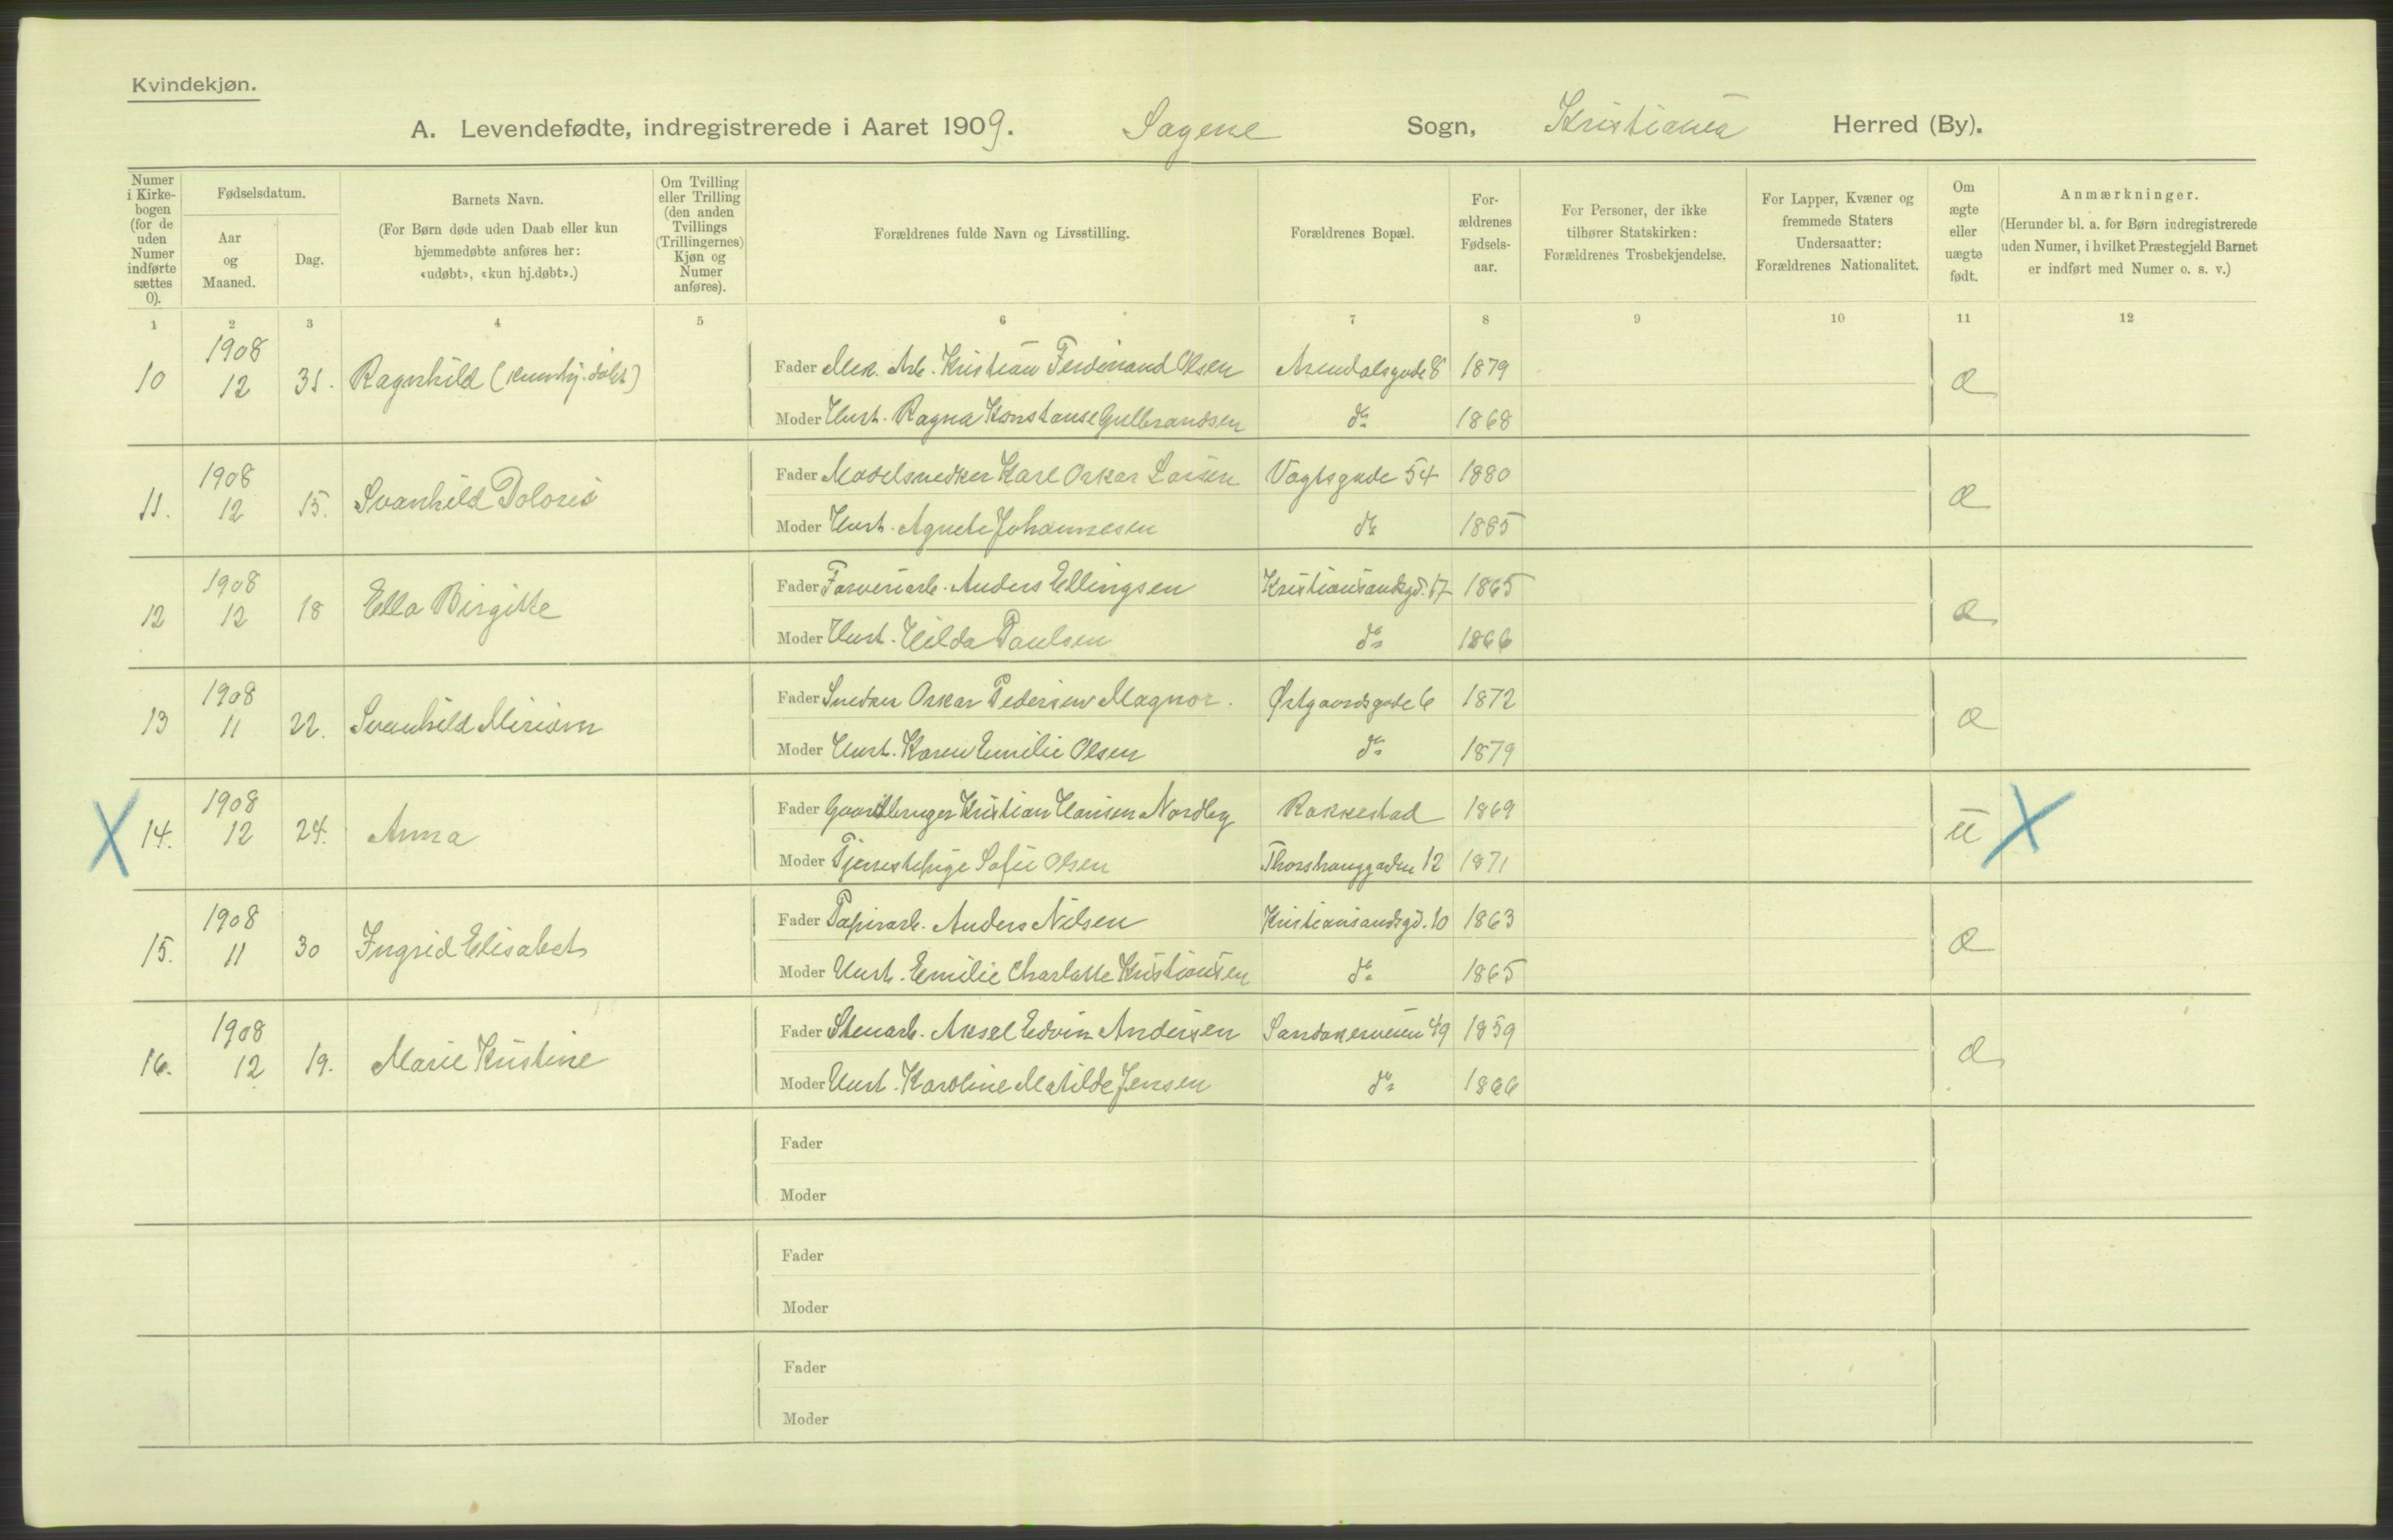 Kvindekjøn.
A. Levendefødte, indregistrerede i Aaret 1909. Sagene Sogn, Kristiania Herred (By).
Numer i Kirkebogen (for de uden Numer indførte sættes 0).
Fødselsdatum.
Aar og Maaned.
Dag.
Barnets Navn.
(For Børn døde uden Daab eller kun hjemmedøbte anføres her: «udøbt», «kun hj.døbt».)
Om Tvilling eller Trilling (den anden Tvillings (Trillingernes) Kjøn og Numer anføres).
Forældrenes fulde Navn og Livsstilling.
Forældrenes Bopæl.
Forældrenes Fødselsaar.
For Personer, der ikke tilhører Statskirken: Forældrenes Trosbekjendelse.
For Lapper, Kvæner og fremmede Staters Undersaatter: Forældrenes Nationalitet.
Om ægte eller uægte født.
Anmærkninger.
(Herunder bl. a. for Børn indregistrerede uden Numer, i hvilket Præstegjeld Barnet er indført med Numer o. s. v.)
1 2 3 4 5 6 7 8 9 10 11 12
10 1908 12 31. Ragnhild (kun hj. døbt) Fader Mek. Arb. Kristian Ferdinand Olsen Arendalsgade 8 1879 Æ
Moder Hust. Ragna Konstanse Gulbrandsen do 1868
11. 1908 12 15. Svanhild Doloris Fader Modelsnedker Karl Oskar Larsen Vogtsgade 54 1880 Æ
Moder Hust. Agnete Johannesen do 1885
12 1908 12 18 Ella Birgitte Fader Farveriarb. Anders Ellingsen Kristiansandsgd. 17 1865 Æ
Moder Hust. Hilda Paulsen do 1866
13 1908 11 22. Svanhild Miriam Fader Snedker Oskar Pedersen Magnor. Østgaardsgade 6 1872 Æ
Moder Hust. Karen Emilie Olsen do 1879
X 14. 1908 12 24. Anna Fader Gaardbruger Kristian Hansen Nordby Rakkestad 1869 U X
Moder Tjenestepige Sofie Olsen Thorshauggaden 12 1871
15. 1908 11 30 Ingrid Elisabet Fader Papirarb. Anders Nilsen Kristiansandsgd. 10 1863 Æ
Moder Hust. Emilie Charlotte Kristiansen do 1865
16. 1908 12 19. Marie Kristine Fader Stenarb. Aksel Edvin Andersen Sandakerveien 49 1859 Æ
Moder Hust. Karoline Matilde Jensen do 1866
Fader
Moder
Fader
Moder
Fader
Moder